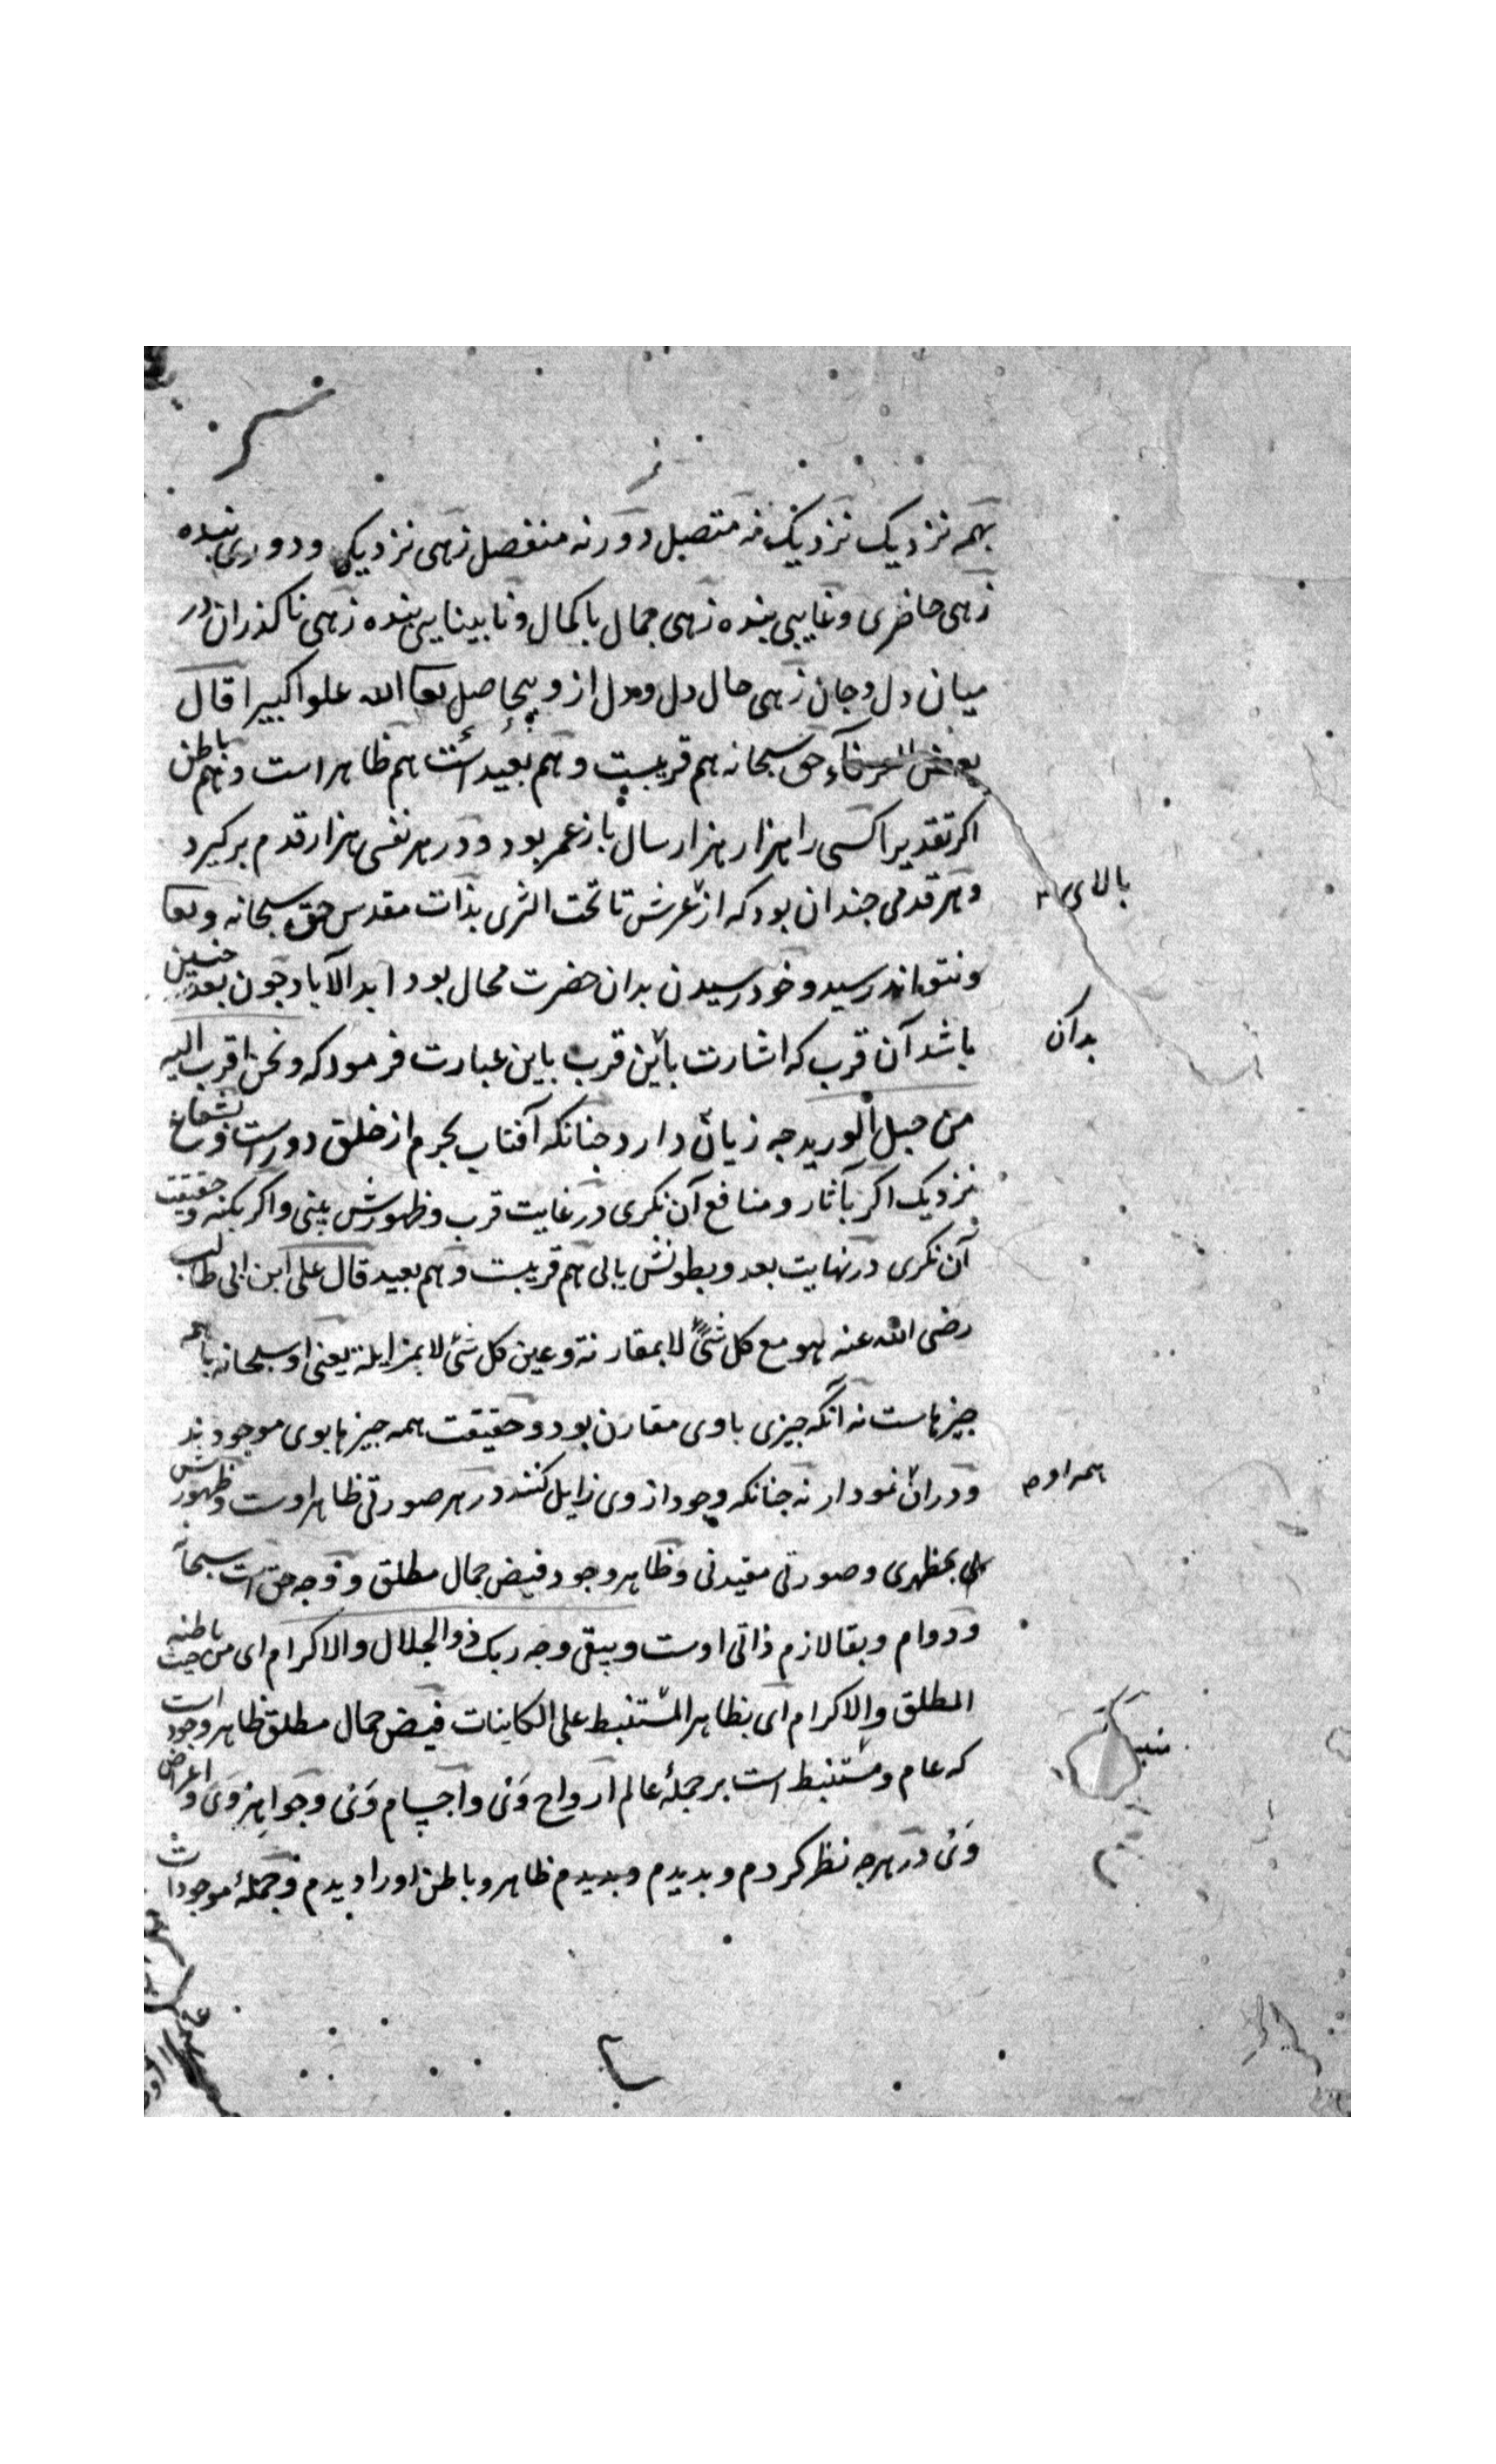 بهمه نزدیک نزدیک نه متصل دور نه منفصل زهی نزدیکی و دوری بنده
زهی حاضری و غایبی بنده زهی جمال باکمال و نابینایی بنده زهی ناکذران در
میان دل و جان زهی حال دل و دل ازو بیحاصل تعا الله علوا کبیرا قال
بعض العرفآء حق سبحانه هم قریبست و هم بعید است هم ظاهر است و هم باطن
اکر تقدیرا کسی را هزار هزار سال باز عمر بود و در هر نفسی هزار قدم برکیرد
و هر قدمی جندان بود که از عرش تا تحت الثری بذات مقدس حق سبحانه و تعا
ونتواند رسید و خود رسیدن بدان حضرت محال بود ابد الآباد جون بعد جنین
باشد آن قرب که اشارت باین قرب باین عبارت فرمود که ونحن اقرب الیه
من حبل الورید جه زیان دارد جنانکه آفتاب بجرم از خلق دورست و بشعاع
نزدیک اکر بآثار و منافع آن نکری در غایت قرب و ظهورش بینی و اکر بکنه و حقیقت
آن نکری در نهایت بعد و بطونش یابی هم قریبست و هم بعید قال علی ابن ابی طالب
رضی الله عنه هو مع کل شئ لا بمقارنة و عین کل شئ لا بمزایلة یعنی او سبحانه باهمه
جیزهاست نه آنکه جیزی با وی مقارن بود و حقیقت همه جیزها بوی موجودند
و در ان نمودار نه جنانکه وجود از وی زایل کنند در هر صورتی ظاهر اوست و ظهورش
بمظهری و صورتی مقید نی و ظاهر وجود فیض جمال مطلق و وجه حق است سبحانه
و دوام و بقا لازم ذاتی اوست ویبقی وجه ربک ذو الجلال والاکرام ای من حیث باطنه
المطلق والاکرام ای بظاهر المنبسط علی الکاینات فیض جمال مطلق ظاهر وجود است
که عام و منبسط است بر جملهٔ عالم ارواح ونی و اجسام ونی و جواهر ونی و اعراض
ونی در هرجه نظر کردم و بدیدم و بدیدم ظاهر و باطن او را دیدم و جملهٔ موجودات
بالای
بدان
همه اوست